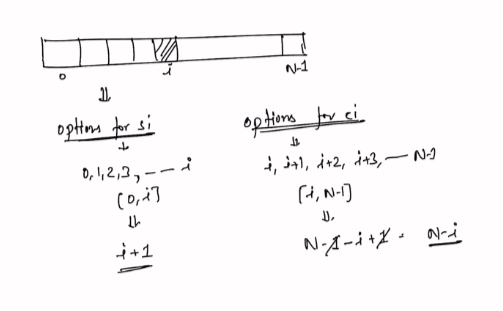 0 i N-1
options for si
0, 1, 2, 3, - - - i
[0, i]
i+1
options for ei
i, i+1, i+2, i+3, — N-1
[i, N-1]
N-1-i+1 = N-i